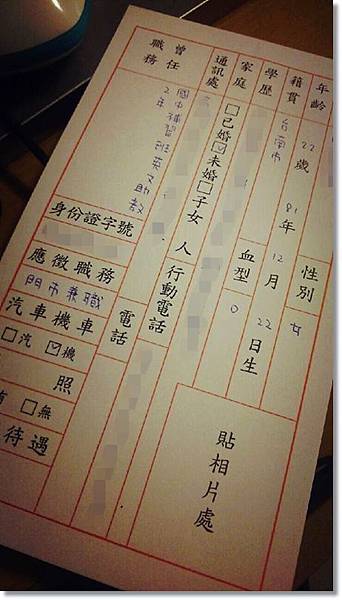 年齡 22歲 性別 女
籍貫 台南市 81年12月22日生
學歷 血型 O
家庭 □已婚☑未婚□子女 人
通訊處 行動電話
電話
曾任職務 國中補習班英文助教
2年
身份證字號
應徵職務 門市兼職
汽車機車 □汽 ☑機
照 □無
待遇
貼相片處